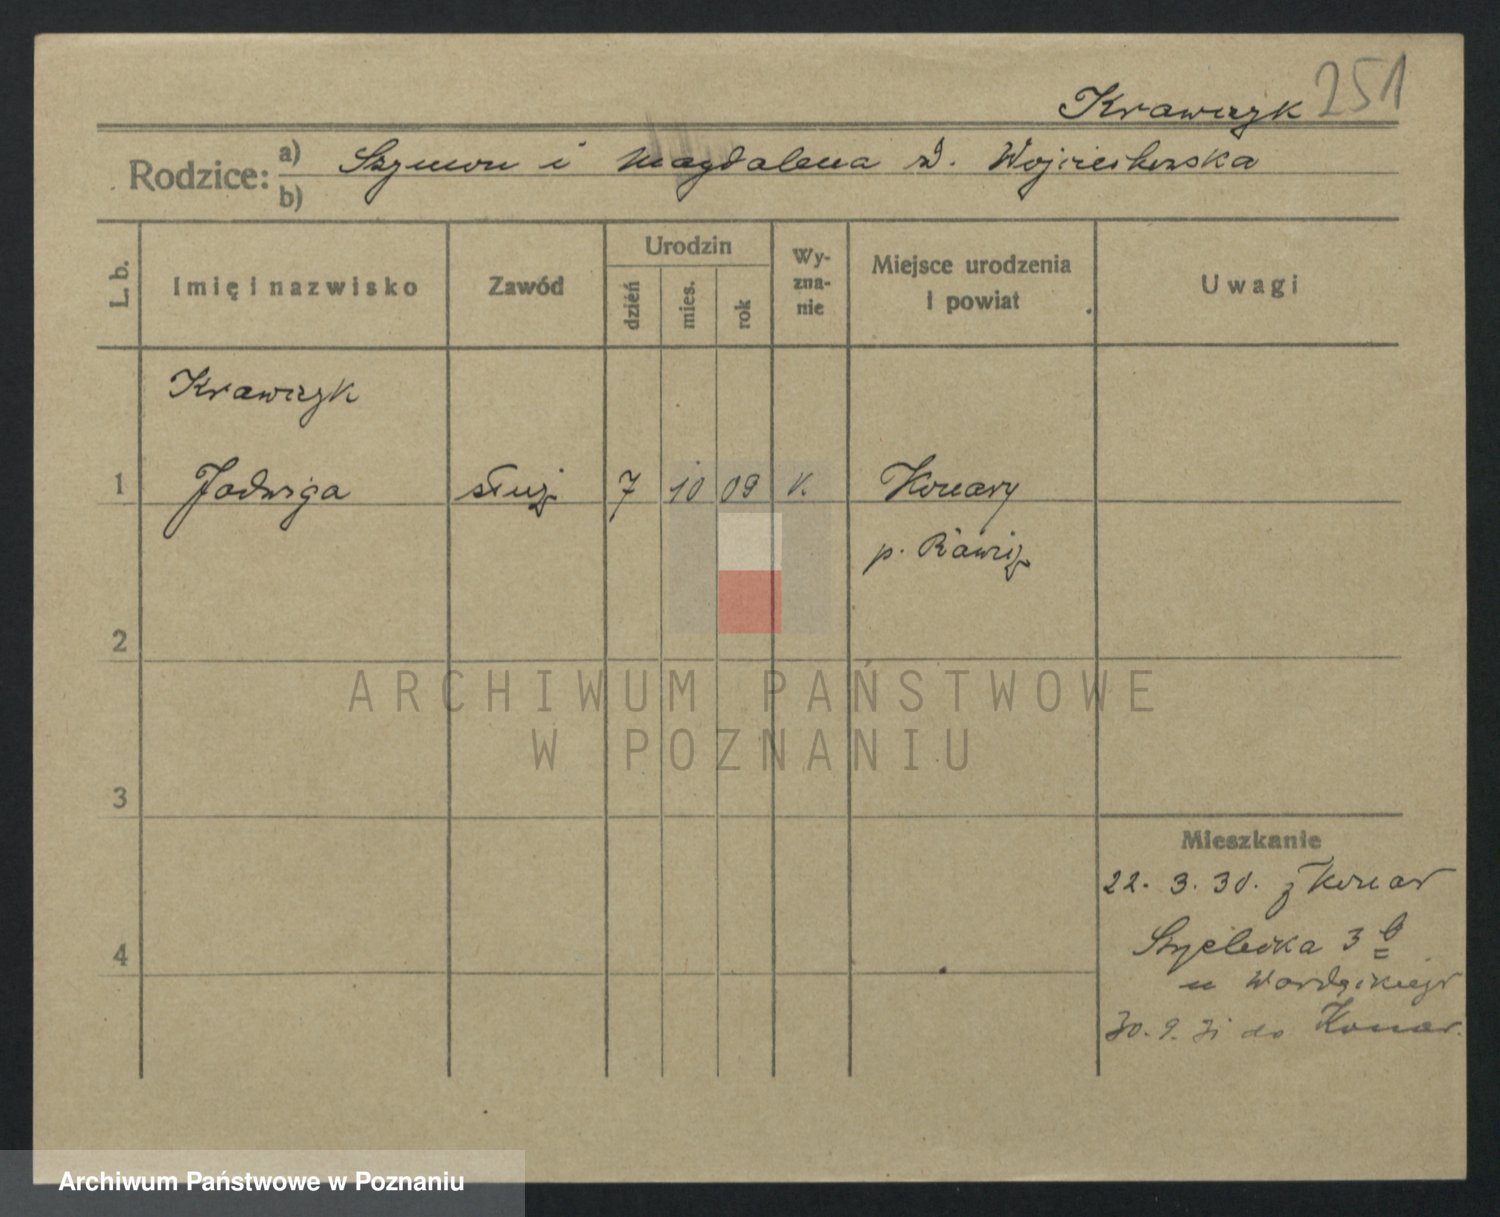 Krawczyk 251
Rodzice: a) Szymon i Magdalena z d. Wojciechowska
b)
L. b.
Imię i nazwisko
Zawód
Urodzin
dzień
mies.
rok
Wy-
zna-
nie
Miejsce urodzenia
i powiat
Uwagi
Krawczyk
1 Jadwiga służ. 7 10 09 k. Konary
p. Rawicz
2
ARCHIWUM PAŃSTWOWE
W POZNANIU
3
Mieszkanie
22. 3. 30. z Konar
4
3 b
u
30. 9. 31 do Konar.
Archiwum Państwowe w Poznaniu